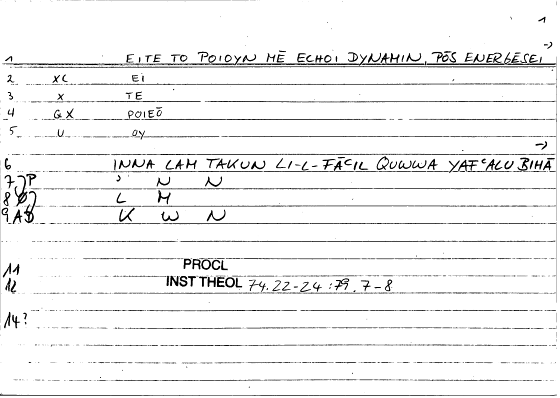 1
1 EITE TO POIOYN MĒ ECHOI DYNAMIN, PŌS ENERGĒSEI →
2 XC EI
3 X TE
4 GX POIEŌ
5 U OY
6 INNA LAM TAKUN LI-L-FĀʿIL QUWWA YAFʿALU BIHĀ →
7 P ʾ N N
8 L M
9 K W N
11 PROCL
12 INST THEOL 74.22-24 : 79.7-8
14?